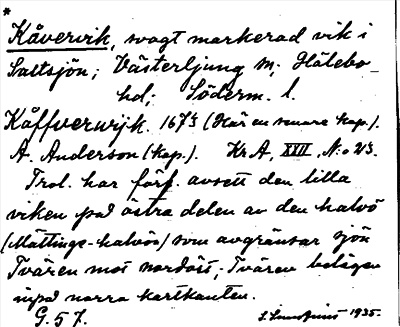 *
Kåvervik, svagt markerad vik i
Saltsjön; Västerljung sn; Hölebo
hd; Söderm. l.
Kåffverwijk 1673 (Här en senare kop.).
A. Anderson (kop.). Kr.A, XVII, N:o 23.
Trol. har förf. avsett den lilla
viken på östra delen av den halvö
(Mättinge-halvön) som avgränsar sjön
Tvären mot nordöst; Tvären belägen
inpå norra kartkanten.
G. 57. 1935.